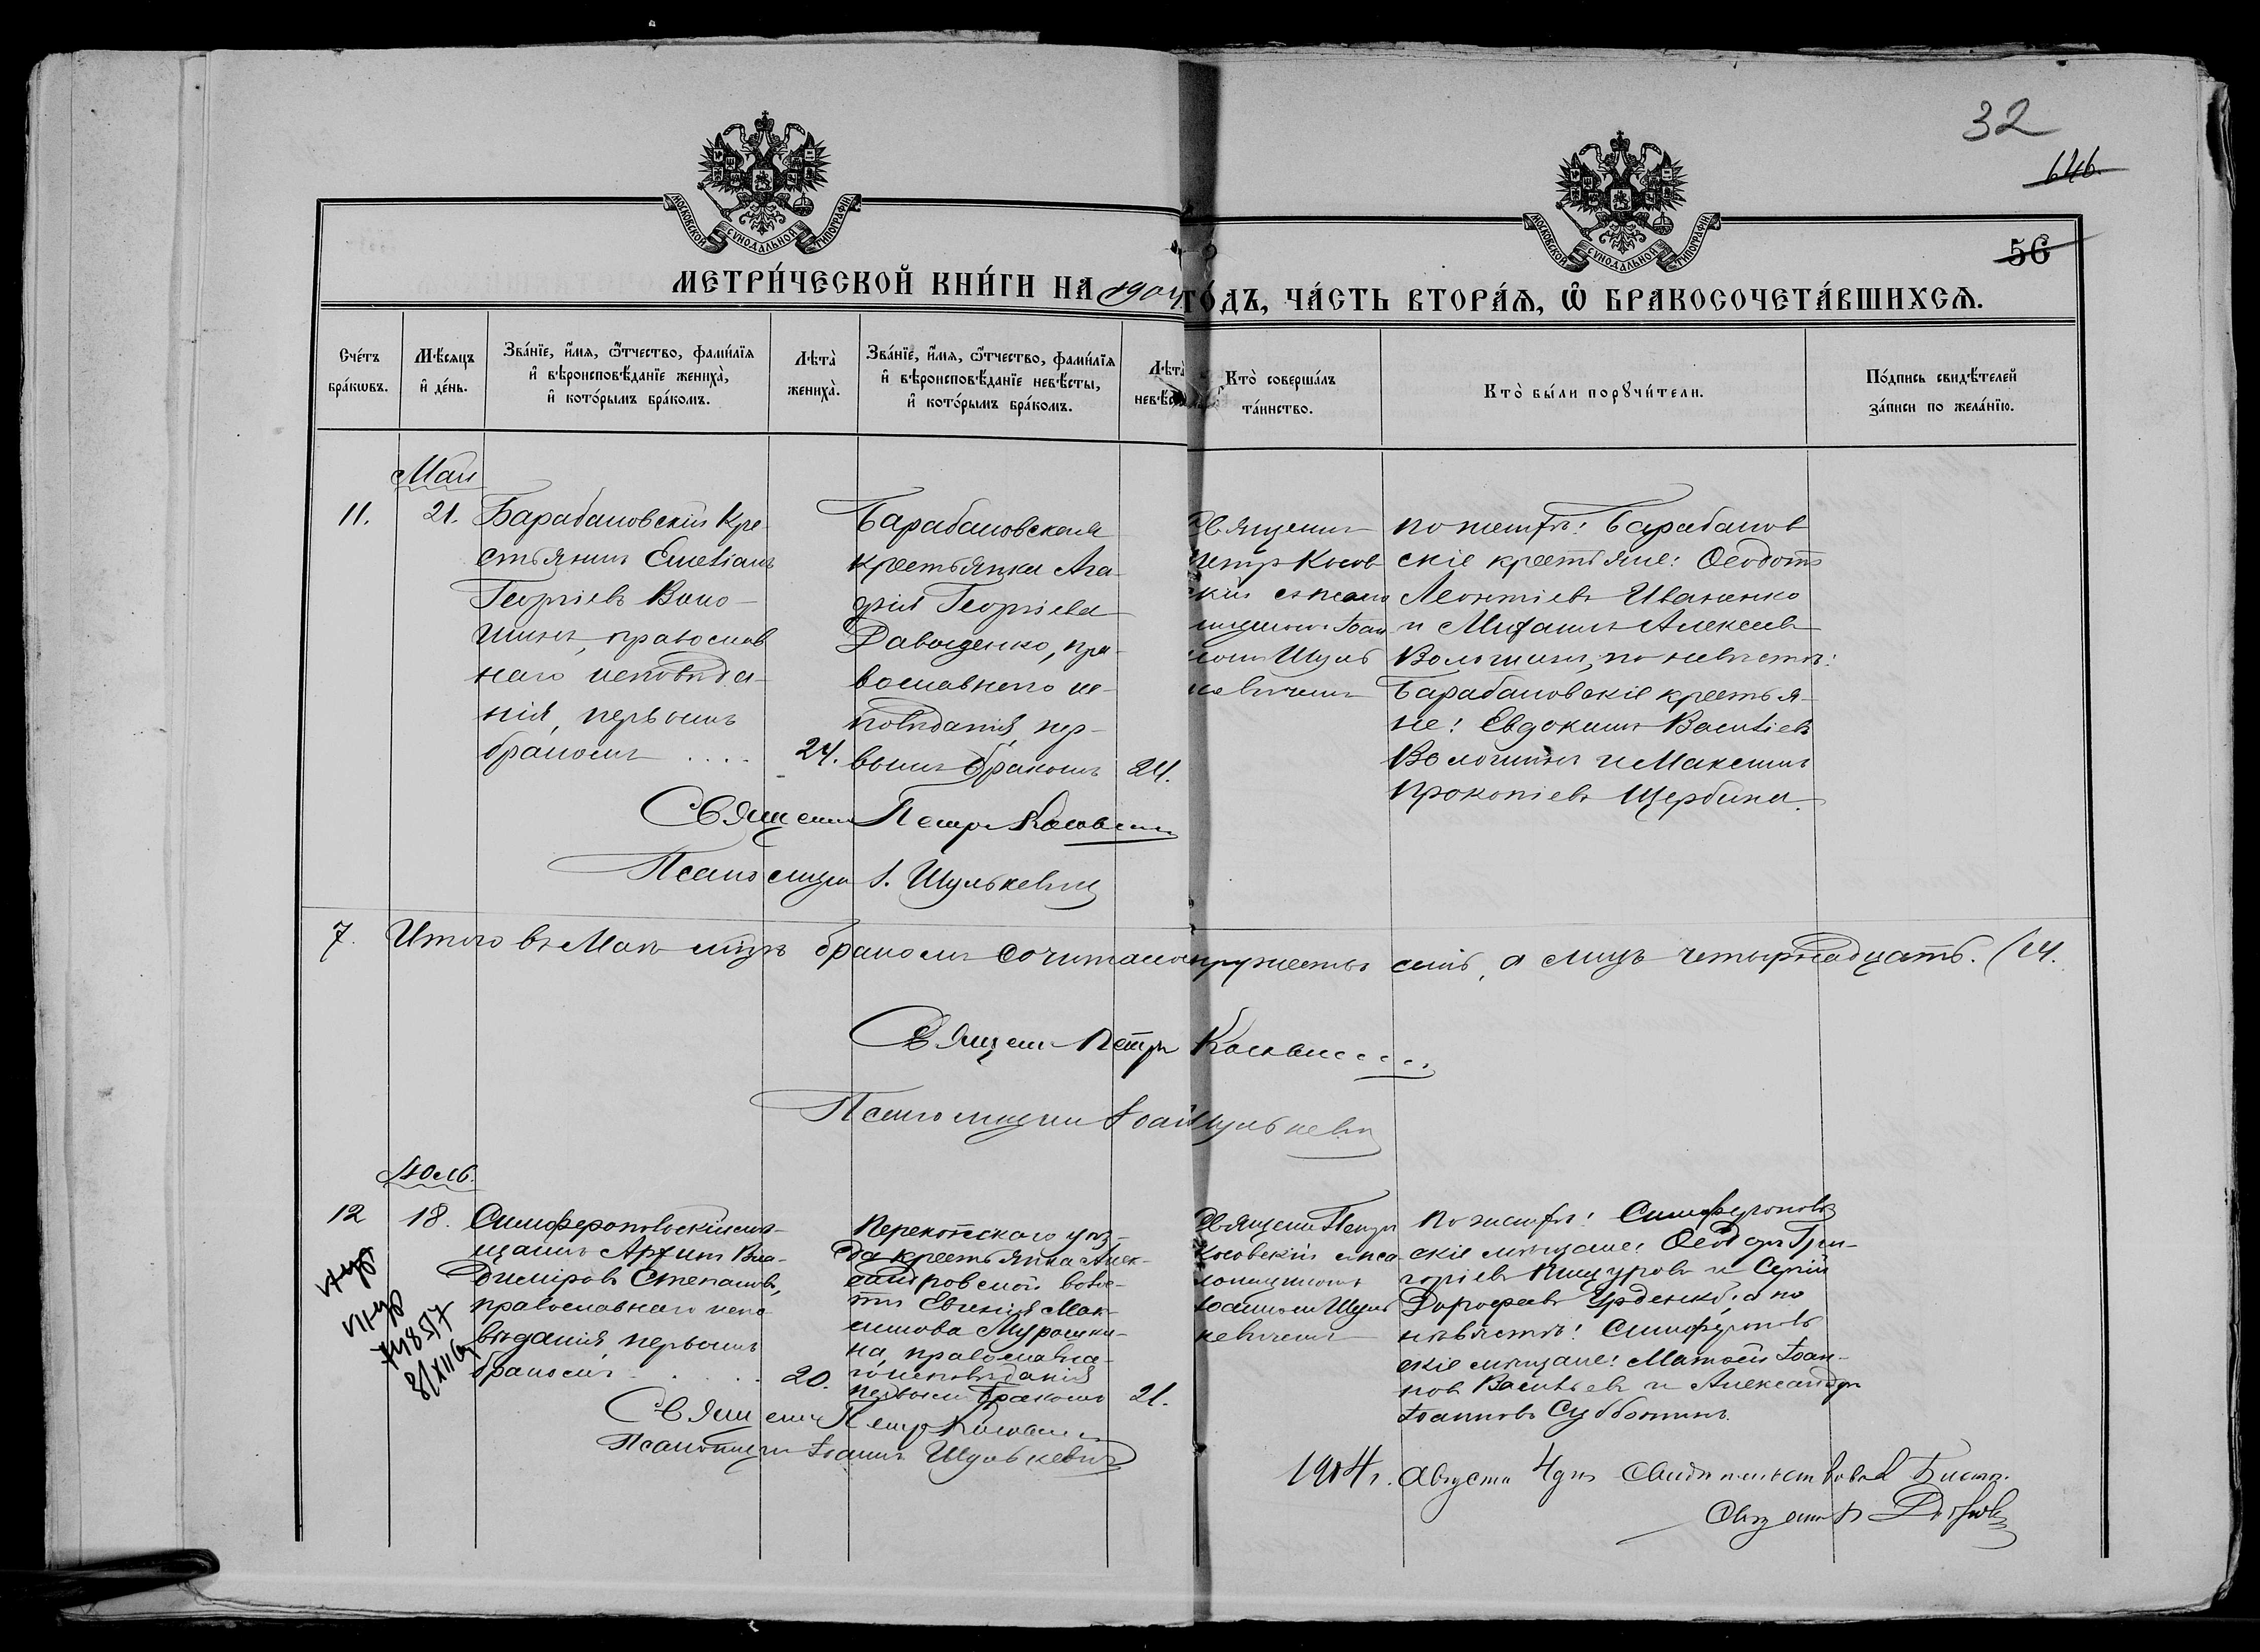 32
646.
56
МОСКОВСКОЙ СѴНОДАЛЬНОЙ ТИПОГРАФІИ
МОСКОВСКОЙ СѴНОДАЛЬНОЙ ТИПОГРАФІИ
МЕТРИ́ЧЕСКОЙ КНИ́ГИ НА 1904 ГО́ДЪ, ЧА́СТЬ ВТОРА́Ѧ, Ѽ БРАКОСОЧЕТА́ВШИХСѦ.
Сче́тъ бра́кωвъ.
Мѣ́сяцъ и҆ де́нь.
Зва́нїе, и҆́мѧ, ѻ҆́тчество, фами́лїѧ и҆ вѣроисповѣ́данїе жениха̀, и҆ кото́рымъ бра́комъ.
Лѣта̀ жениха̀.
Зва́нїе, и҆́мѧ, ѻ҆́тчество, фами́лїѧ и҆ вѣроисповѣ́данїе невѣ́сты, и҆ кото́рымъ бра́комъ.
Лѣта̀
Кто̀ соверша́лъ та́инство.
Кто̀ бы́ли порꙋчи́тели.
По́дпись свидѣ́телей за́писи по жела́нїю.
Май
11.
21.
Барабановскій кре-
стьянинъ Емеліанъ
Георгіевъ Воло-
шинъ, православ
наго исповѣда-
нія, первымъ
бракомъ . . . .
24.
Барабановская
крестьянка Ага-
фія Георгіева
Давыденко, пра-
вославнаго ис-
повѣданія, пер-
вымъ бракомъ
24.
Священникъ
Петръ Косов
скій съ псало
мщикомъ Іоан
номъ Шуль
кевичемъ
по женихѣ: Барабанов
скіе крестьяне: Ѳеодотъ
Леонтіевъ Иваненко
и Михаилъ Алексеевъ
Волошинъ, по невѣстѣ:
Барабановскіе крестья-
не: Евдокимъ Василіевъ
Волошинъ и Максимъ
Прокопіевъ Щербина.
Священникъ Петръ Косовскій
Псаломщикъ І. Шулькевичъ
7. Итого въ Маѣ мѣсяцѣ бракомъ сочиталось супружествъ семь, а лицъ четырнадцать. (14.
Священникъ Петръ Косовскій
Псаломщикъ Іоаннъ Шулькевичъ
Іюль.
12
18.
Симферопольскій мѣ-
щанинъ Архипъ Вла-
диміровъ Степановъ,
православнаго испо
вѣданія, первымъ
бракомъ . . . .
20.
Перекопскаго уѣз-
да крестьянка Алек-
сандровской волос-
ти Евгенія Мак-
симова Мурашки-
на, православна-
го исповѣданія
первымъ бракомъ
21.
Священникъ Петръ
Косовскій съ пса
ломщикомъ
Іоанномъ Шуль
кевичемъ
По женихѣ: Симферополь
скіе мѣщане: Ѳеодоръ Гри-
горіевъ Пищуровъ и Сергій
Дороѳеевъ Урденко; а по
невѣстѣ: Симферополь
скіе мѣщане: Матѳей Іоан-
новъ Васильевъ и Александръ
Іоанновъ Субботинъ.
Священникъ Петръ Косовскій
Псаломщикъ Іоаннъ Шулькевичъ
1904 г. Августа 4 дня свидѣтельствовалъ